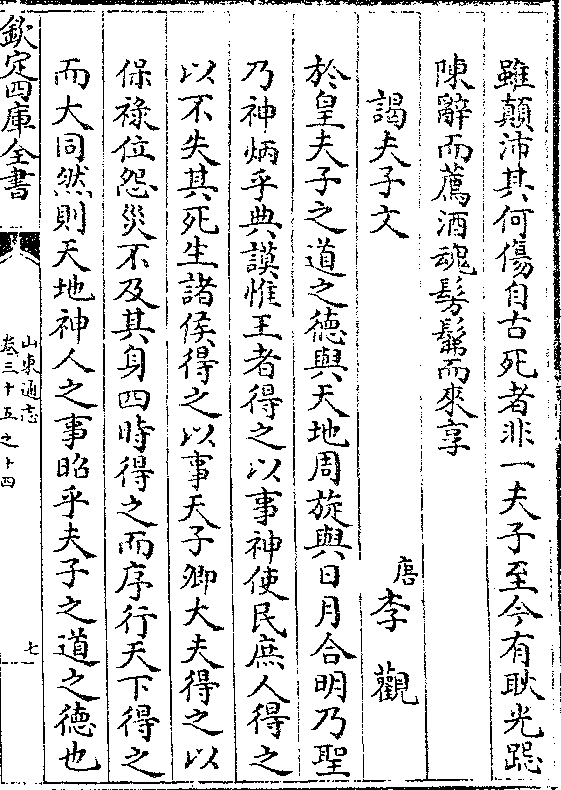 雖顛沛其何傷自古死者非一夫子至今有耿光跽
陳辭而薦酒魂髣髴而來享
謁夫子文
唐李觀
於皇夫子之道之德與天地周旋與日月合明乃聖
乃神炳乎典謨惟王者得之以事神使民庶人得之
以不失其死生諸侯得之以事天子卿大夫得之以
保祿位怨災不及其身四時得之而序行天下得之
而大同然則天地神人之事昭乎夫子之道之德也
欽定四庫全書
山東通志
卷三十五之十四
七